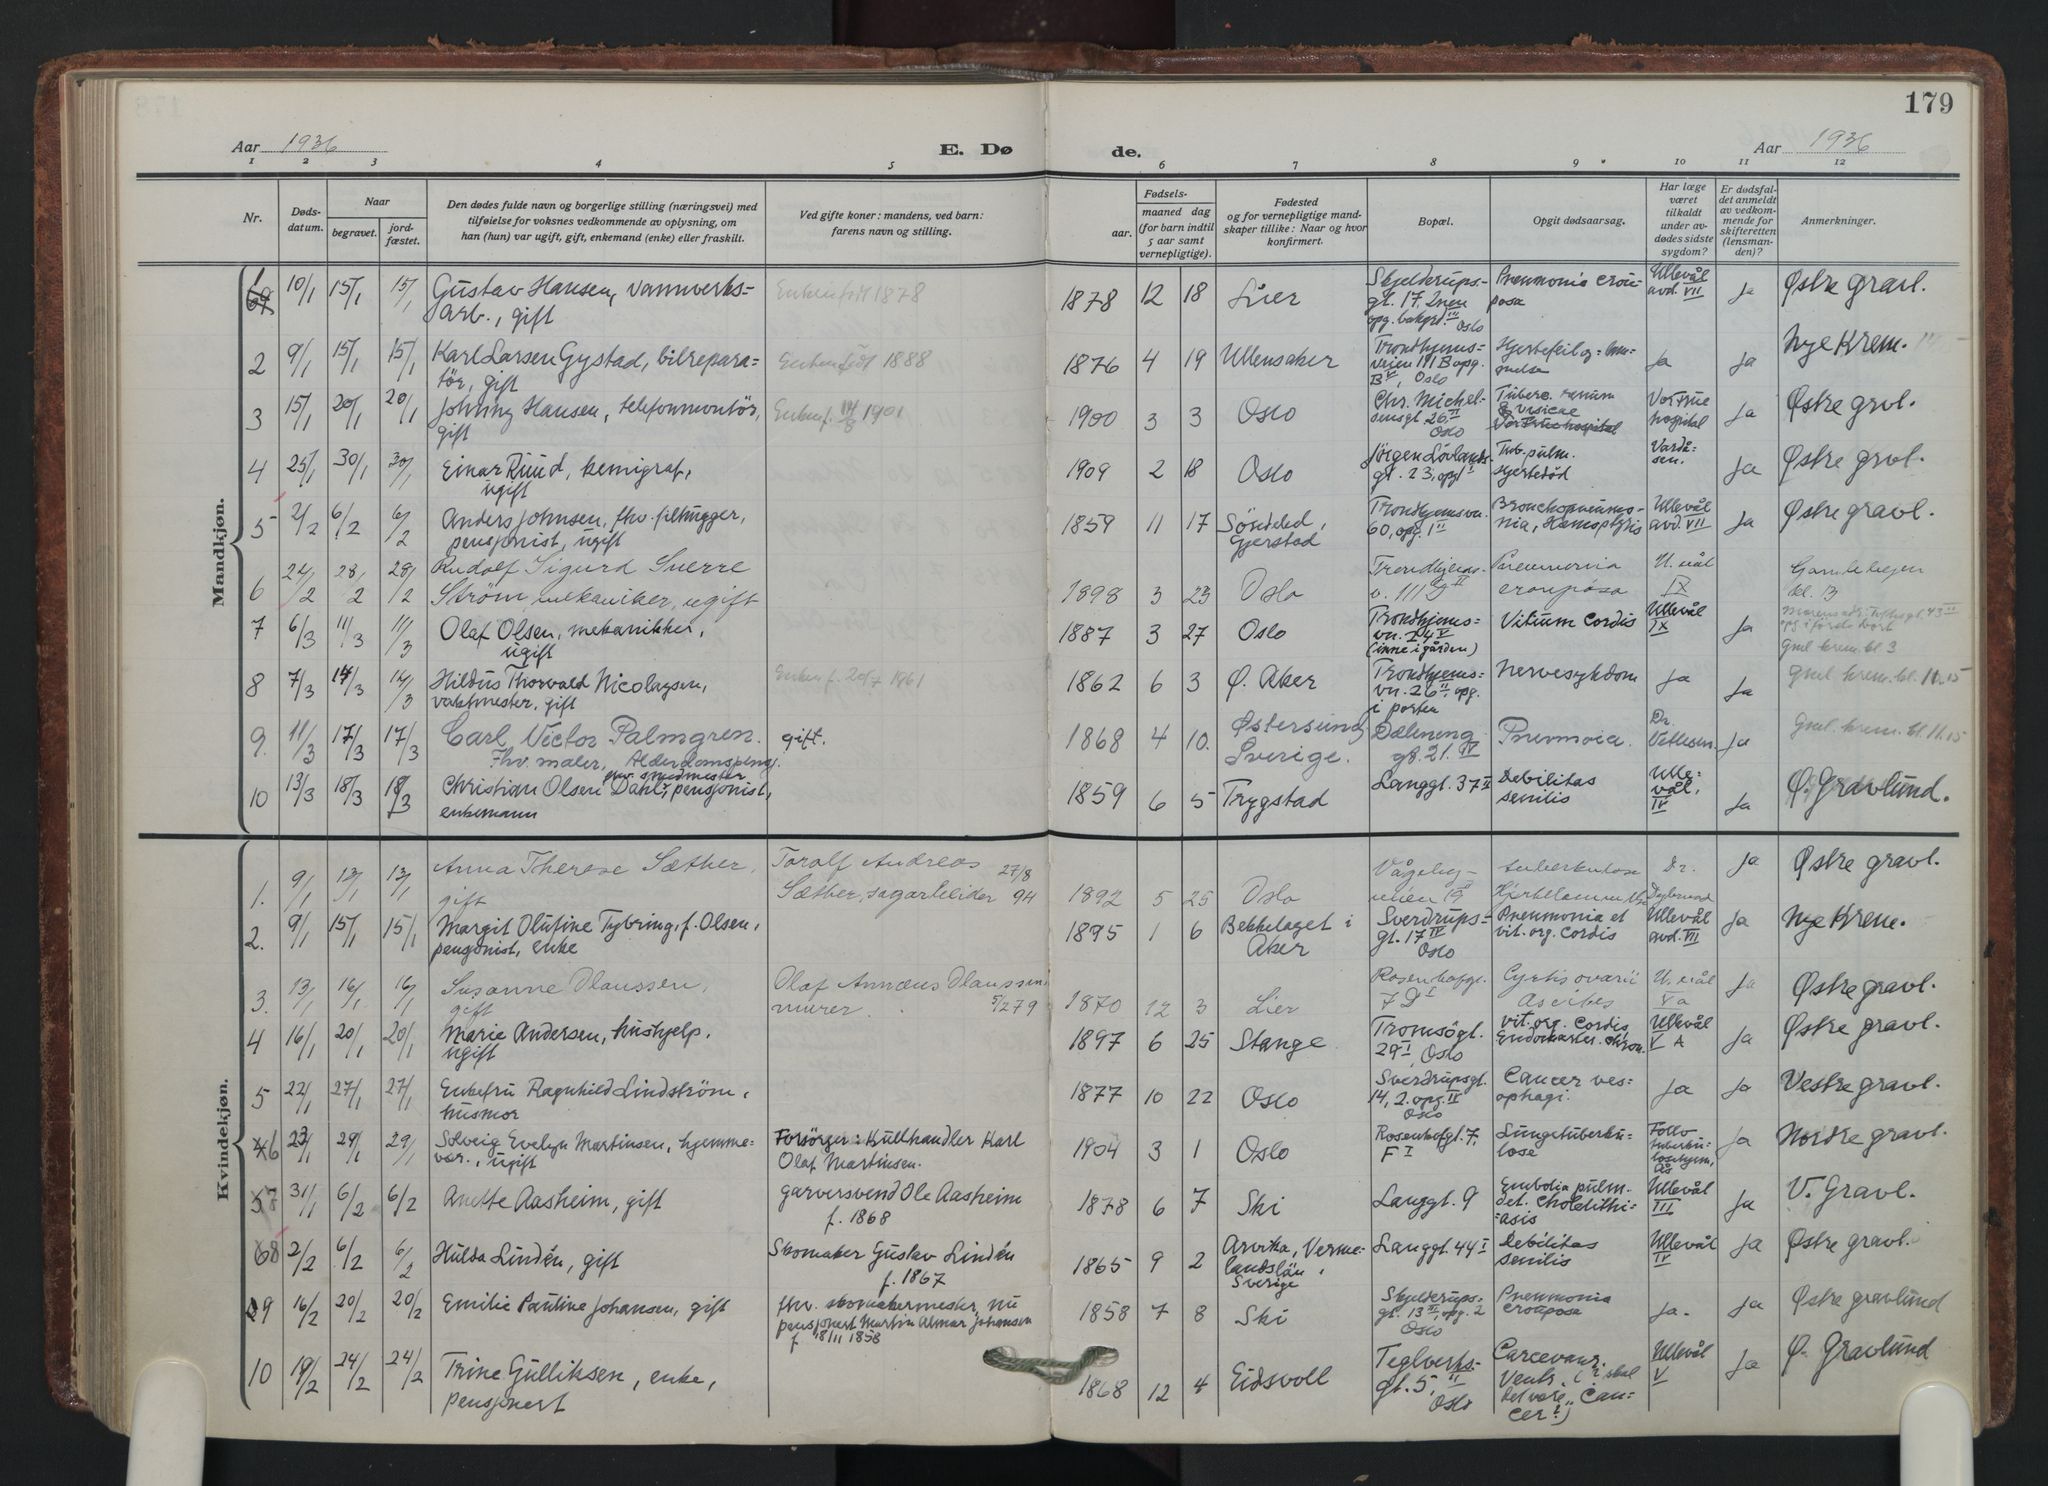 179
Aar 1936
E. Dø
de.
Aar 1936
1 2 3 4 5 6 7 8 9 10 11 12
Nr.
Døds-
datum.
Naar
begravet.
jord-
fæstet.
Den dødes fulde navn og borgerlige stilling (næringsvei) med
tilføielse for voksnes vedkommende av oplysning, om
han (hun) var ugift, gift, enkemand (enke) eller fraskilt.
Ved gifte koner: mandens, ved barn:
farens navn og stilling.
Fødsels-
aar.
maaned dag
(for barn indtil
5 aar samt
vernepligtige).
Fødested
og for vernepligtige mand-
skaper tillike: Naar og hvor
konfirmert.
Bopæl.
Opgit dødsaarsag.
Har læge
været
tilkaldt
under av-
dødes sidste
sygdom?
Er dødsfal-
det anmeldt
av vedkom-
mende for
skifteretten
(lensman-
den)?
Anmerkninger.
Mandkjøn.
1 10/1 15/1 15/1 Gustav Hansen, vannverks-
arb., gift
Enken født 1878
1878 12 18 Lier
Skjelderups-
gt. 17, 2nen
opg. bakgrd. III
Oslo
Pneumonia crou-
posa
Ullevål
avd. VII
Ja
Østre gravl.
2 9/1 15/1 15/1 Karl Larsen Gystad, bilrepara-
tör, gift
Enken født 1888
1876 4 19 Ullensaker
Trondhjems-
veien 111 B opg.
B V, Oslo
Hjertefeil og
Ja
Ja
Nye Krem.
3 15/1 20/1 20/1 Johnny Hansen, telefonmontör,
gift
Enken f. 14/8 1901
1900 3 3 Oslo
Chr. Michel-
sensgt. 26 II
Oslo
Tuberc. renum
& vesicae
Vor Frue hospital
Vor Frue
hospital
Ja
Østre grvl.
4 25/1 30/1 30/1 Einar Ruud, kemigraf,
ugift
1909 2 18 Oslo
Jörgen Lövlands-
gt. 23, opg I
Tub. pulm.
Hjertedöd
Vardå-
sen.
Ja
Østre grvl.
5 2/2 6/2 6/2 Anders Johnsen, fhv. filhugger,
pensjonist, ugift
1859 11 17 Söndeled,
Gjerstad
Trondhjemsvn.
60, opg. 1 II
Bronchopneumo-
nia, Hæmoptysis
Ullevål
avd. VII
Ja
Østre gravl.
6 24/2 28/2 28/2 Rudolf Sigurd Sverre
Strøm, mekaniker, ugift
1898 3 23 Oslo
Trondhjems-
v. 111 G II
Pneumonia
crouposa
U. vål
IX
Gamle
kl. 13
7 6/3 11/3 11/3 Olaf Olsen, mekanikker,
ugift
1887 3 27 Oslo
Trondhjems-
vn. 24 V
(inne i gården)
Vitium Cordis
Ullevål
IX
Ja
Gml. krem. kl. 3
8 7/3 14/3 14/3 Hildus Thorvald Nicolaysen,
vaktmester, gift
Enken f. 20/7 1861
1862 6 3 Ø. Aker
Trondhjems-
vn. 26 II, opg.
i porten
Nervesykdom
Ja
Ja
Gml. krem. kl. 11.15
9. 11/3 17/3 17/3 Carl Victor Palmgren.
Fhv. maler, Alderdomspensj.
gift.
1868 4 10. Østersund
Sverige.
Dælneng
gt. 21. IV
Pnevmoia.
Dr.
Vetlesen
Ja
Gml. krem. kl. 11.15
10 13/3 18/3 18/3 Christian Olsen Dahl, fhv. smedmester pensjonist,
enkemann
1859 6 5 Trygstad
Langgt. 37 II
Debilitas
senilis
Ulle-
vål,
IV
Ja
Ø. Gravlund.
Kvindekjøn.
1. 9/1 13/1 13/1 Anna Therese Sæther,
gift
Toralf Andreas 27/8
Sæther, sagarbeider 94
1892 5 25 Oslo
Vågeby-
veien
tuberkulose
Hjertelammelse
Dr.
Ja
Østre gravl.
2. 9/1 15/1 15/1 Margit Olufine Tybring, f. Olsen,
pensjonist, enke
1895 1 6 Bekkelaget i
Aker
Sverdrups-
gt. 17 IV
Oslo
Pneumonia et
vit. org. Cordis
Ullevål
avd. VII
Ja
Nye Krem.
3. 13/1 16/1 16/1 Susanne Olaussen,
gift
Olaf Annæus Olaussen
murer. 5/2 79
1870 12 3 Lier
Rosenhofgt.
7 D I
Cystis ovarii
Ascites
U. vål
V a
Ja
Østre gravl.
4 16/1 20/1 20/1 Marie Andersen, hushjelp,
ugift
1897 6 25 Stange
Tromsögt.
29 I Oslo
vit. org. Cordis
Endokartes. chron.
Ullevål
V A
Ja
Østre gravl.
5 22/1 27/1 27/1 Enkefru Ragnhild Lindström,
husmor
1877 10 22 Oslo
Sverdrupsgt.
14, 2. opg. II
Oslo
Cancer oes-
ophagi.
Ja
Ja
Vestre gravl.
6 23/1 29/1 29/1 Solveig Evelyn Martinsen, hjemme-
vær., ugift
Forsörger: Kullhandler Karl
Olaf Martinsen.
1904 3 1 Oslo
Rosenhofgt. 7,
F I
Lungetuberku-
lose
Follo
tuberku-
losehjem,
Ås
Ja
Nordre gravl.
7 31/1 6/2 6/2 Anette Aasheim, gift
Garversvend Ole Aasheim
f. 1868
1878 6 7 Ski
Langgt. 9
Embolia pulm.
det. Cholelithi-
asis
Ullevål
III
Ja
V. Gravl.
8 2/2 6/2 6/2 Hulda Lindén, gift
Skomaker Gustav Lindén
f. 1867
1865 9 2 Arvika, Verme-
landslän,
Sverige
Langgt. 44 I
Debilitas
senilis
Ullevål
IV
Ja
Østre gravl.
9 16/2 20/2 20/2 Emilie Pauline Johansen, gift
fhv. skomakermester, nu
pensjonert Martin Almar Johansen
f. 18/11 1858
1858 7 8 Ski
Skjelderups-
gt. 13 III, opg. 2
Oslo
Pneumonia
crouposa
Ja.
Ja
Østre gravlund
10 19/2 24/2 24/2 Trine Gulliksen, enke,
pensjonert
1868 12 4 Eidsvoll
Teglverks-
gt. 5, II
Oslo
Ventr. (skal
det være „Can-
cer"?)
Ullevål
V
Ja
Ø. Gravlund